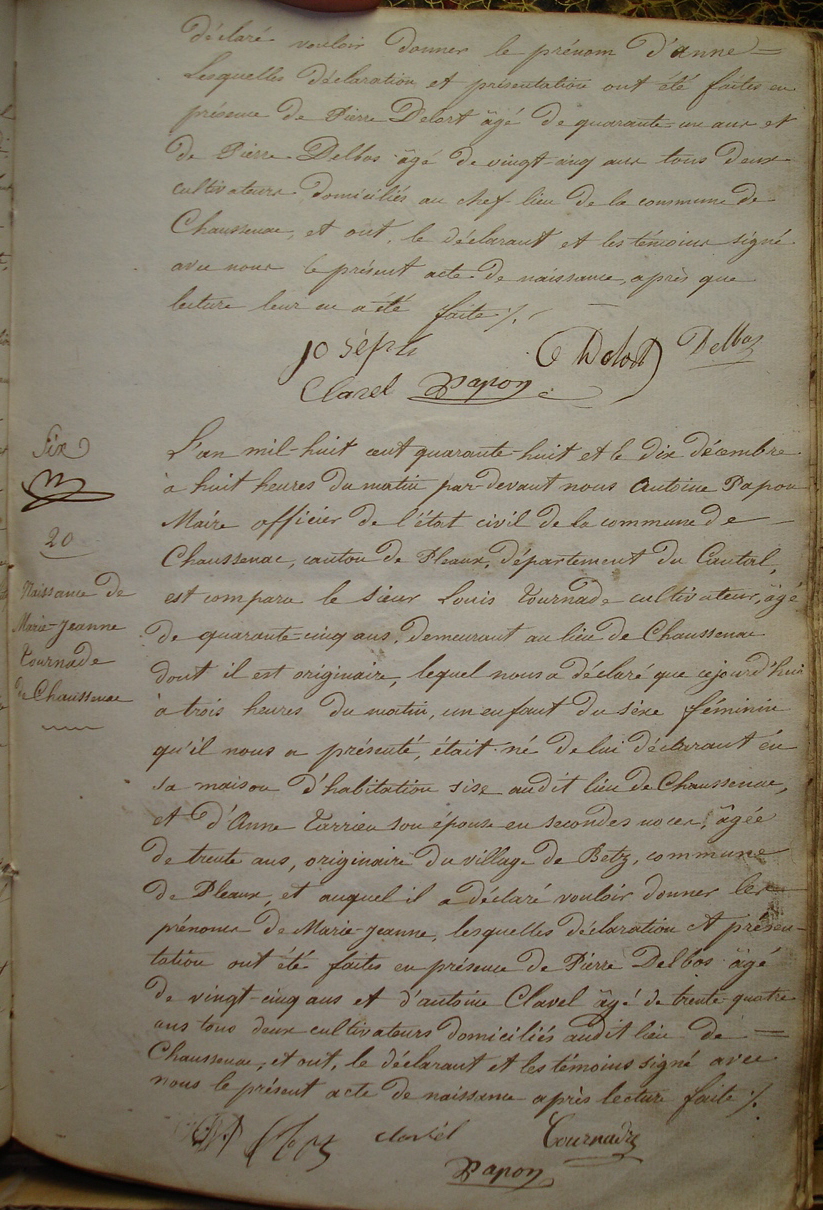 déclaré vouloir donner le prénom d'anne =
Lesquelles déclaration et présentation ont été faites en
présence de Pierre Delort âgé de quarante-un ans et
de Pierre Delbos âgé de vingt-cinq ans tous deux
cultivateurs domiciliés au chef-lieu de la commune de
Chaussenac, et ont, le déclarant et les témoins signé
avec nous le présent acte de naissance, après que
lecture leur en a été faite ./.
joseph Delort Delbos
Clavel Papon
Six
20
Naissance de
Marie-Jeanne
Tournade
de Chaussenac
L'an mil-huit cent quarante-huit et le dix décembre
à huit heures du matin par-devant nous Antoine Papon
Maire officier de l'état civil de la commune de
Chaussenac, canton de Pleaux, département du Cantal,
est comparu le sieur Louis Tournade cultivateur, âgé
de quarante-cinq ans, demeurant au lieu de Chaussenac
dont il est originaire, lequel nous a déclaré que cejourd'hui
à trois heures du matin, un enfant du sèxe féminin
qu'il nous a présenté, était né de lui déclarant en
sa maison d'habitation sise audit lieu de Chaussenac,
et d'Anne Tarrieu son épouse en secondes noces, âgée
de trente ans, originaire du village de Betz, commune
de Pleaux, et auquel il a déclaré vouloir donner les
prénoms de Marie-Jeanne, lesquelles déclaration et présen-
tation ont été faites en présence de Pierre Delbos âgé
de vingt-cinq ans et d'antoine Clavel âgé de trente-quatre
ans tous deux cultivateurs domiciliés audit lieu de =
Chaussenac, et ont, le déclarant et les témoins signé avec
nous le présent acte de naissance après lecture faite ./.
clavel Tournade
Papon